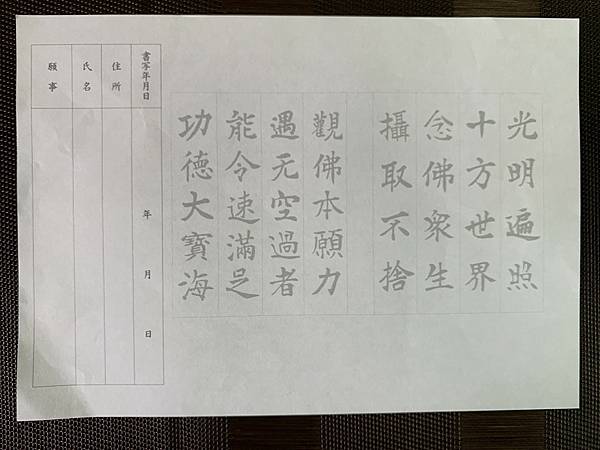 光明遍照
十方世界
念佛衆生
攝取不捨
觀佛本願力
遇无空過者
能令速滿足
功德大寶海
書写年月日
年 月 日
住所
氏名
願事